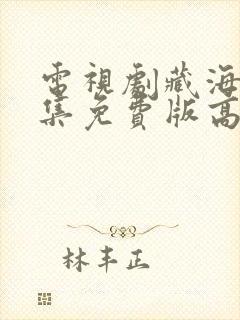 電視劇藏海
集免費版高
林丰正